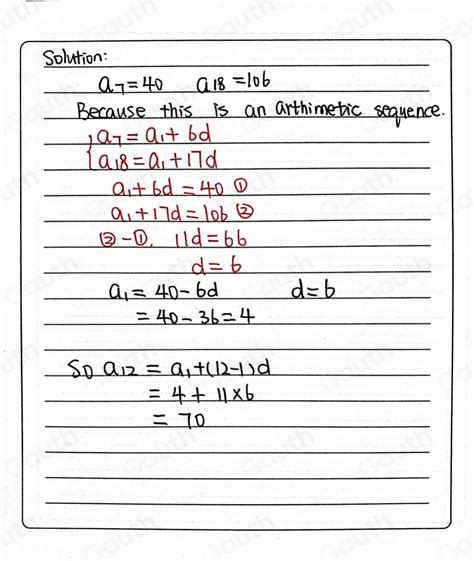 Solution:
a₇=40 a₁₈=106
Because this is an arthimetic sequence.
{a₇=a₁+6d
a₁₈=a₁+17d
a₁+6d=40 ①
a₁+17d=106 ②
②-①, 11d=66
d=6
a₁=40-6d d=6
=40-36=4
So a₁₂=a₁+(12-1)d
=4+11×6
=70